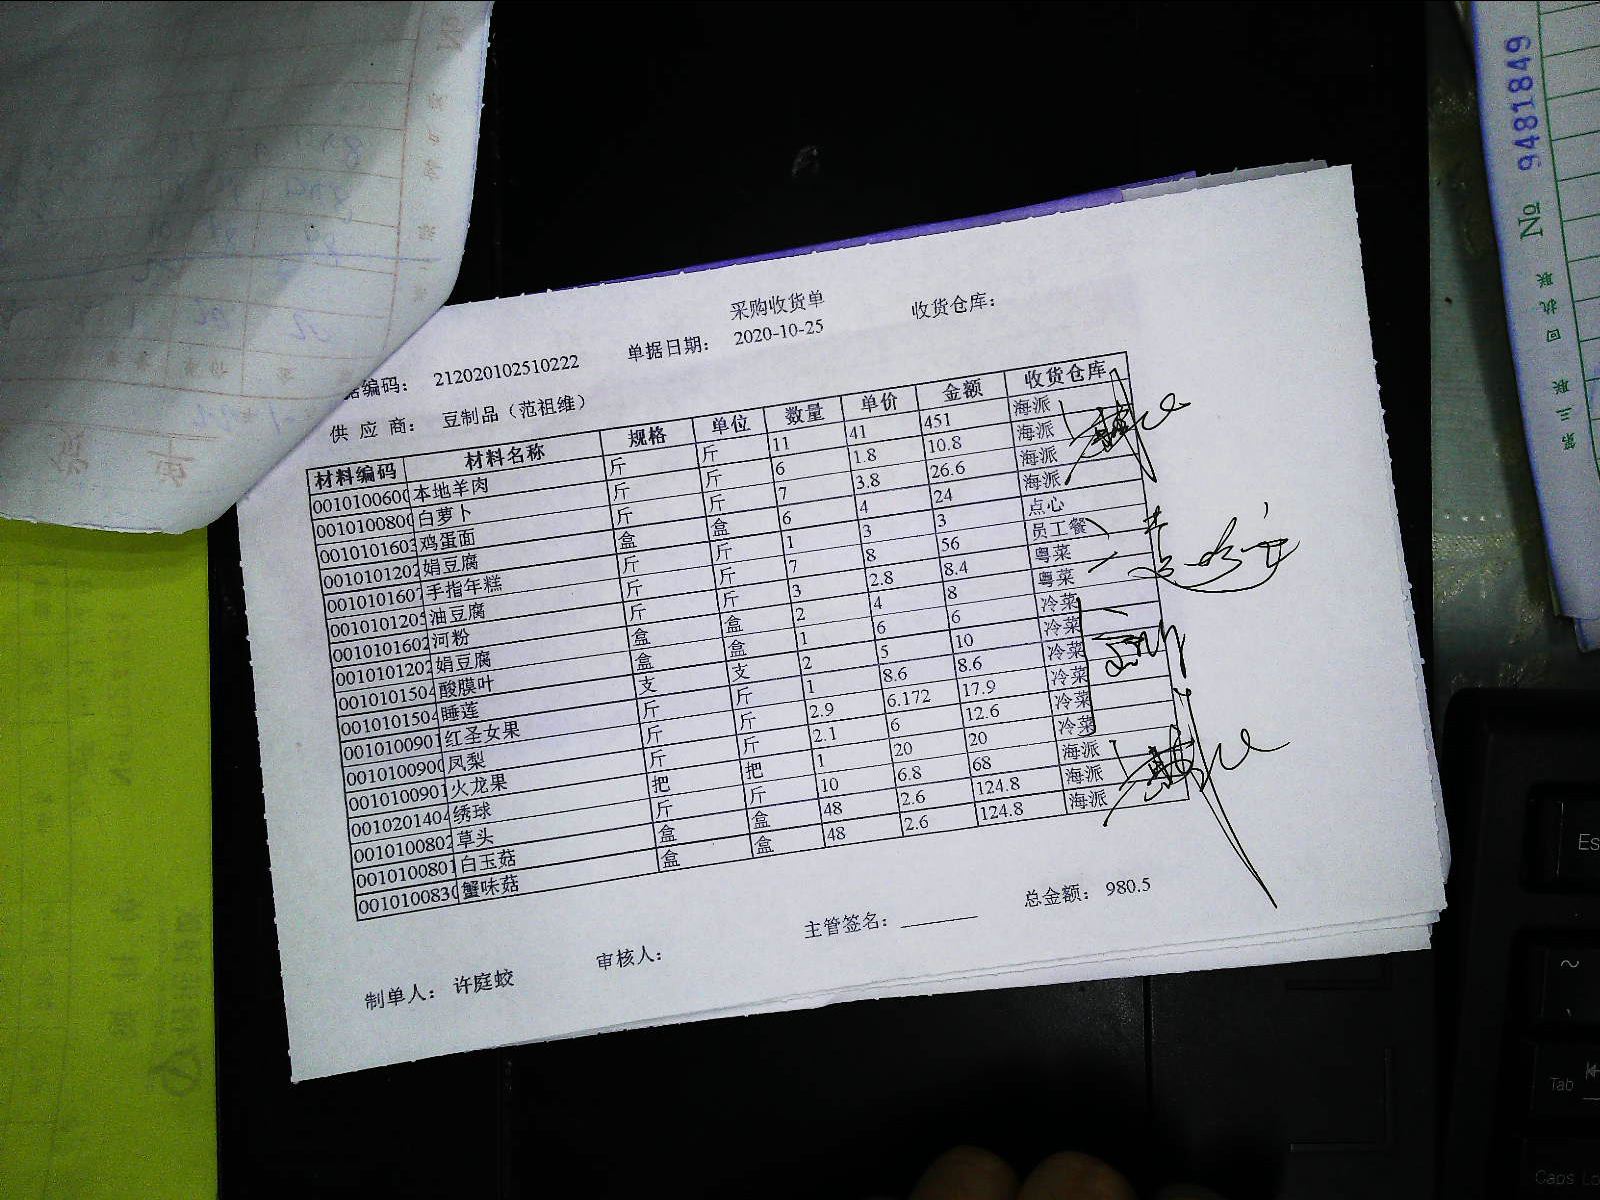 采购收货单
据编码： 212020102510222 单据日期： 2020-10-25 收货仓库：
供 应 商： 豆制品（范祖维）
材料编码 材料名称 规格 单位 数量 单价 金额 收货仓库
0010100600 本地羊肉 斤 斤 11 41 451 海派
0010100800 白萝卜 斤 斤 6 1.8 10.8 海派
0010101603 鸡蛋面 斤 斤 7 3.8 26.6 海派
0010101202 娟豆腐 盒 盒 6 4 24 海派
0010101607 手指年糕 斤 斤 1 3 3 点心
0010101205 油豆腐 斤 斤 7 8 56 员工餐
0010101602 河粉 斤 斤 3 2.8 8.4 粤菜
0010101202 娟豆腐 盒 盒 2 4 8 粤菜
0010101504 酸膜叶 盒 盒 1 6 6 冷菜
0010101504 睡莲 支 支 2 5 10 冷菜
0010100901 红圣女果 斤 斤 1 8.6 8.6 冷菜
0010100900 凤梨 斤 斤 2.9 6.172 17.9 冷菜
0010100901 火龙果 斤 斤 2.1 6 12.6 冷菜
0010201404 绣球 把 把 1 20 20 冷菜
0010100802 草头 斤 斤 10 6.8 68 海派
0010100801 白玉菇 盒 盒 48 2.6 124.8 海派
0010100830 蟹味菇 盒 盒 48 2.6 124.8 海派
主管签名： 总金额： 980.5
制单人： 许庭蛟 审核人：
№ 9481849
第三联 回执联
Es
~
Tab
Caps Lo